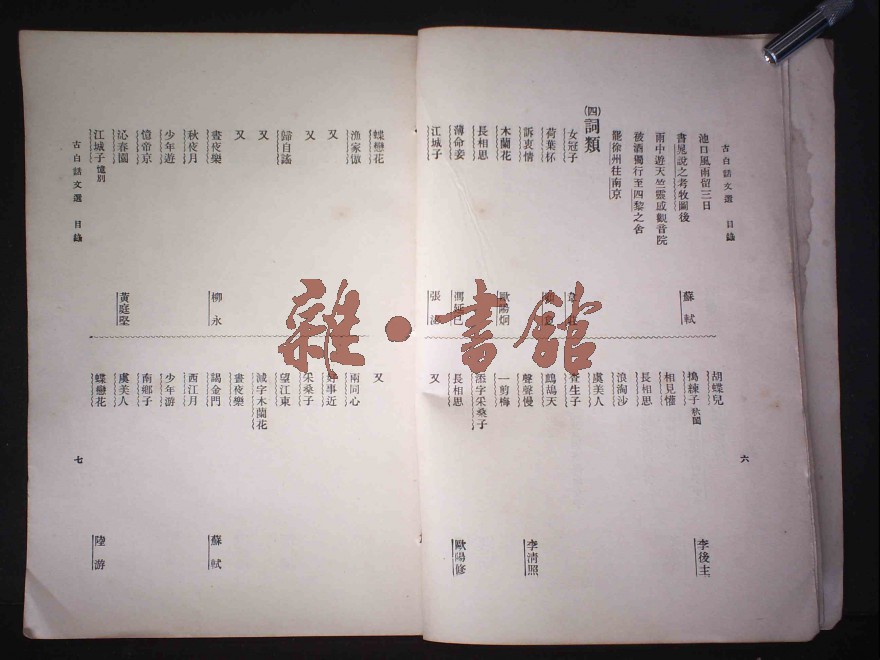 古白話文選　目錄
池口風雨留三日
書晁說之考牧圖後　蘇軾
雨中遊天竺靈感觀音院
被酒獨行至四黎之舍
罷徐州往南京
(四)詞類
女冠子
荷葉杯
訴衷情
木蘭花　歐陽炯
長相思
薄命妾　馮延巳
江城子　張泌
胡蝶兒
搗練子秋閨　李後主
相見懽
長相思
浪淘沙
虞美人
生查子
鷓鴣天
聲聲慢　李清照
一剪梅
添字采桑子
長相思　歐陽修
又
六
雜·書館
蝶戀花
漁家傲
又
又
歸自謠
又
又
晝夜樂　柳永
秋夜月
少年遊
憶帝京
沁春園　黃庭堅
江城子憶別
古白話文選　目錄
又
兩同心
好事近
采桑子
望江東
減字木蘭花
晝夜樂
謁金門　蘇軾
西江月
少年游
南鄉子
虞美人
蝶戀花　陸游
七